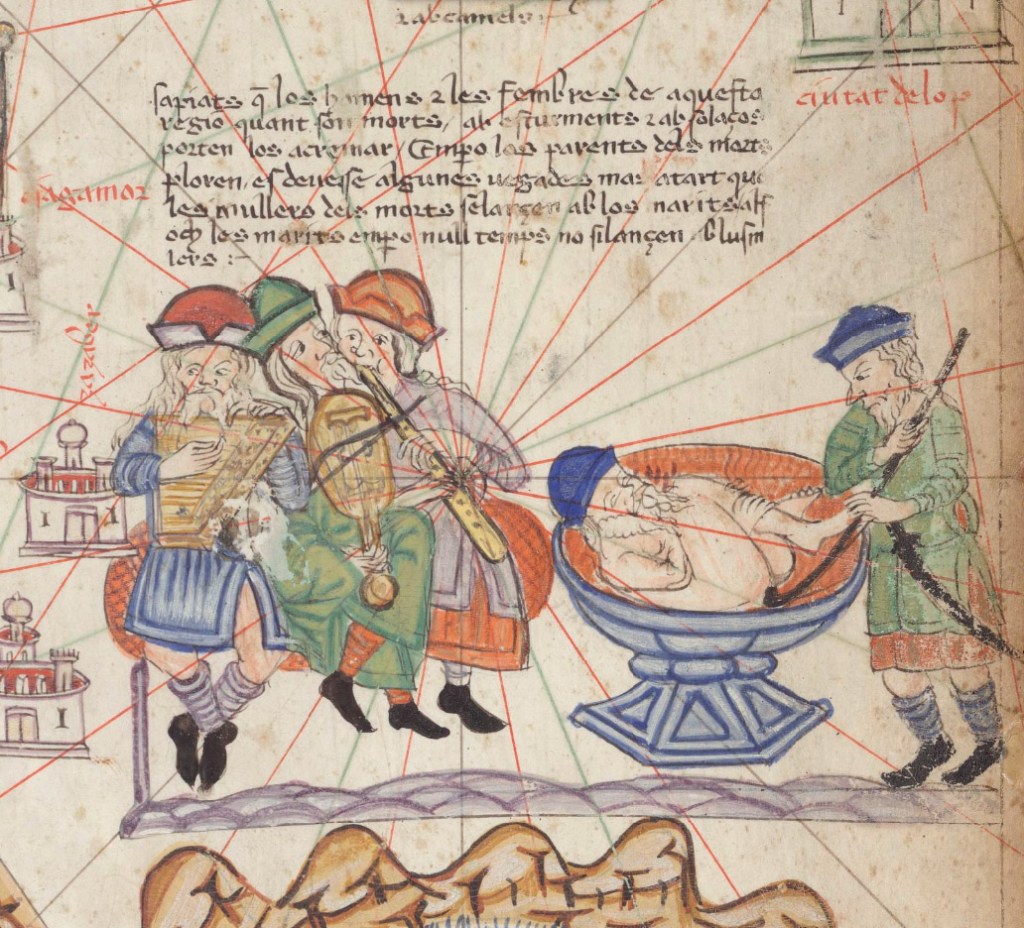 ⁊ ab camels :
sapiats q̄ los homens ⁊ les fembres de aquesta
regio quant son morts, ab esturments ⁊ ab solaços
porten los a cremar, Empo los parents dels morts
ploren, es deveſſe algunes vegades mas a tart que
les mullers dels morts se lançen ab los marits al f
och les marits empo null temps no silançen ab lus m
lers :-
ciutat de lop